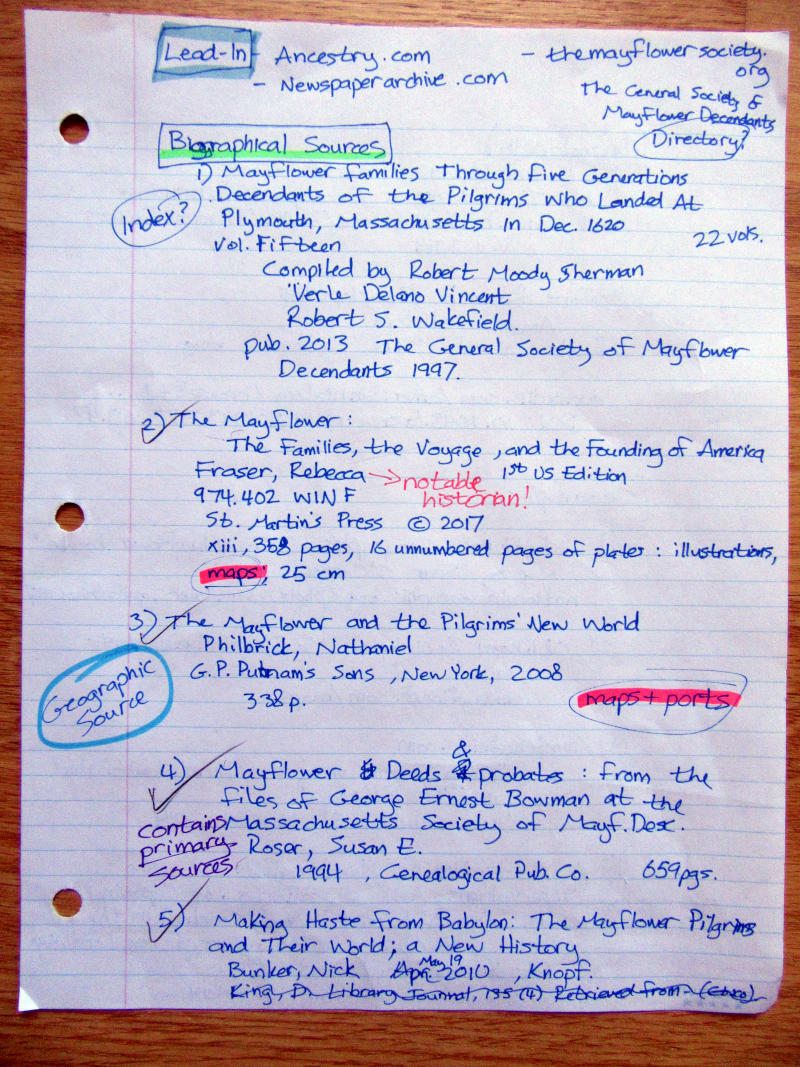 Lead-In - Ancestry.com - themayflowersociety.
org
- Newspaperarchive.com
The General Society of
Mayflower Decendants
Directory?
Biographical Sources
1) Mayflower families Through Five Generations
Decendants of the Pilgrims Who Landed At
Index?
Plymouth, Massachusetts In Dec. 1620
22 vols.
Vol. Fifteen
Compiled by Robert Moody Sherman
Verle Delano Vincent
Robert S. Wakefield.
pub. 2013 The General Society of Mayflower
Decendants 1997.
2) The Mayflower:
The Families, the Voyage, and the Founding of America
Fraser, Rebecca → notable historian! 1st US Edition
974.402 WIN F
St. Martin's Press © 2017
xiii, 358 pages, 16 unnumbered pages of plates : illustrations,
maps; 25 cm
3) The Mayflower and the Pilgrims' New World
Philbrick, Nathaniel
G.P. Putnam's Sons, New York, 2008
Geographic
Source
338 p.
maps + ports
4) Mayflower Deeds & probates : from the
files of George Ernest Bowman at the
Massachusetts Society of Mayf. Desc.
contains
primary
sources
Roser, Susan E.
1994, Genealogical Pub. Co. 659 pgs.
5) Making Haste from Babylon: The Mayflower Pilgrims
and Their World; a New History
Bunker, Nick May 19 2010, Knopf.
King, D. Library Journal, 135 (4) Retrieved from